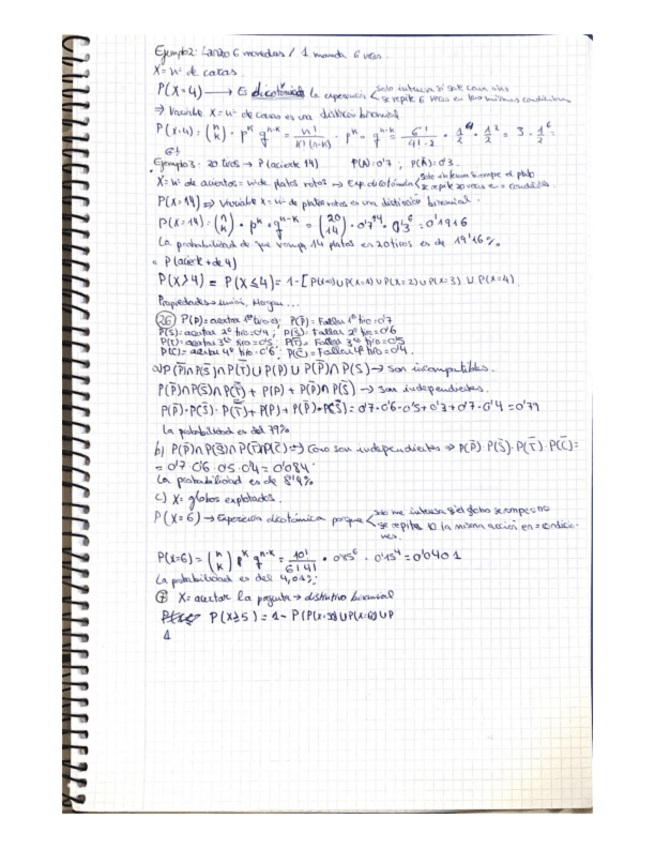 Ejemplo 2: Lanzo 6 monedas / 1 moneda 6 veces.
X = nº de caras.
P(X=4) → Es dicotómica la experiencia < solo interesa si sale cara
se repite 6 veces en las mismas condiciones
⇒ Variable X = nº de caras es una distribución binomial.
P(X=4) = (n k) · p^k q^n-k = n! / k!(n-k)! · p^k · q^n-k = 6! / 4!·2 · 1/2^4 · 1/2^2 = 3 · 1/2^6 =
Ejemplo 3: 20 tiros → P(acierte 14) P(A)=0'7 ; P(Ā)=0'3.
X = nº de aciertos = nº de platos rotos → Exp. dicotómica < solo interesa siempre el plato
se repite 20 veces en = condicio.
P(X=14) ⇒ Variable X = nº de platos rotos es una distribución binomial.
P(X=14) = (n k) · p^k · q^n-k = (20 14) · 0'7^14 · 0'3^6 = 0'1916
La probabilidad de que rompa 14 platos en 20 tiros es de 19'16%.
P(acierte + de 4)
P(X>4) = P(X≤4) = 1-[P(X=0)∪P(X=1)∪P(X=2)∪P(X=3) ∪ P(X=4).
Propiedades → unión, Morgan...
26 P(P)=acertar 1º tiro 0'3 P(P̄) = Fallar 1º tiro = 0'7
P(S)=acertar 2º tiro=0'4 ; P(S̄) = Fallar 2º tiro=0'6
P(T)=acertar 3º tiro=0'5 ; P(T̄) = Fallar 3º tiro=0'5
P(C)=acertar 4º tiro=0'6 ; P(C̄)=Fallar 4º tiro=0'4.
a) P(P̄)∩P(S̄)∩P(T̄)∪P(P)∪P(P̄)∩P(S) → son incompatibles.
P(P̄)∩P(S̄)∩P(T̄) + P(P) + P(P̄)∩P(S̄) → son independientes.
P(P̄)·P(S̄)·P(T̄) + P(P) + P(P̄)·P(S̄) = 0'7·0'6·0'5+0'3+0'7·0'4=0'79
La probabilidad es del 79%
b) P(P̄)∩P(S̄)∩P(T̄)∩P(C̄) ⇒ Como son independientes ⇒ P(P̄)·P(S̄)·P(T̄)·P(C̄)=
= 0'7·0'6·0'5·0'4=0'084.
La probabilidad es de 8'4%
c) X = globos explotados.
P(X=6) → Experiencia dicotómica porque < solo me interesa si el globo se rompe o no
se repite 10 la misma acción en = condiciones.
P(X=6) = (n k) p^k q^n-k = 10! / 6!4! · 0'85^6 · 0'15^4 = 0'0401
La probabilidad es del 4,01%.
X = acertar la pregunta → distributivo binomial
P(X≥5) = 1 - P(P(X=5)∪P(X=6)∪P
1